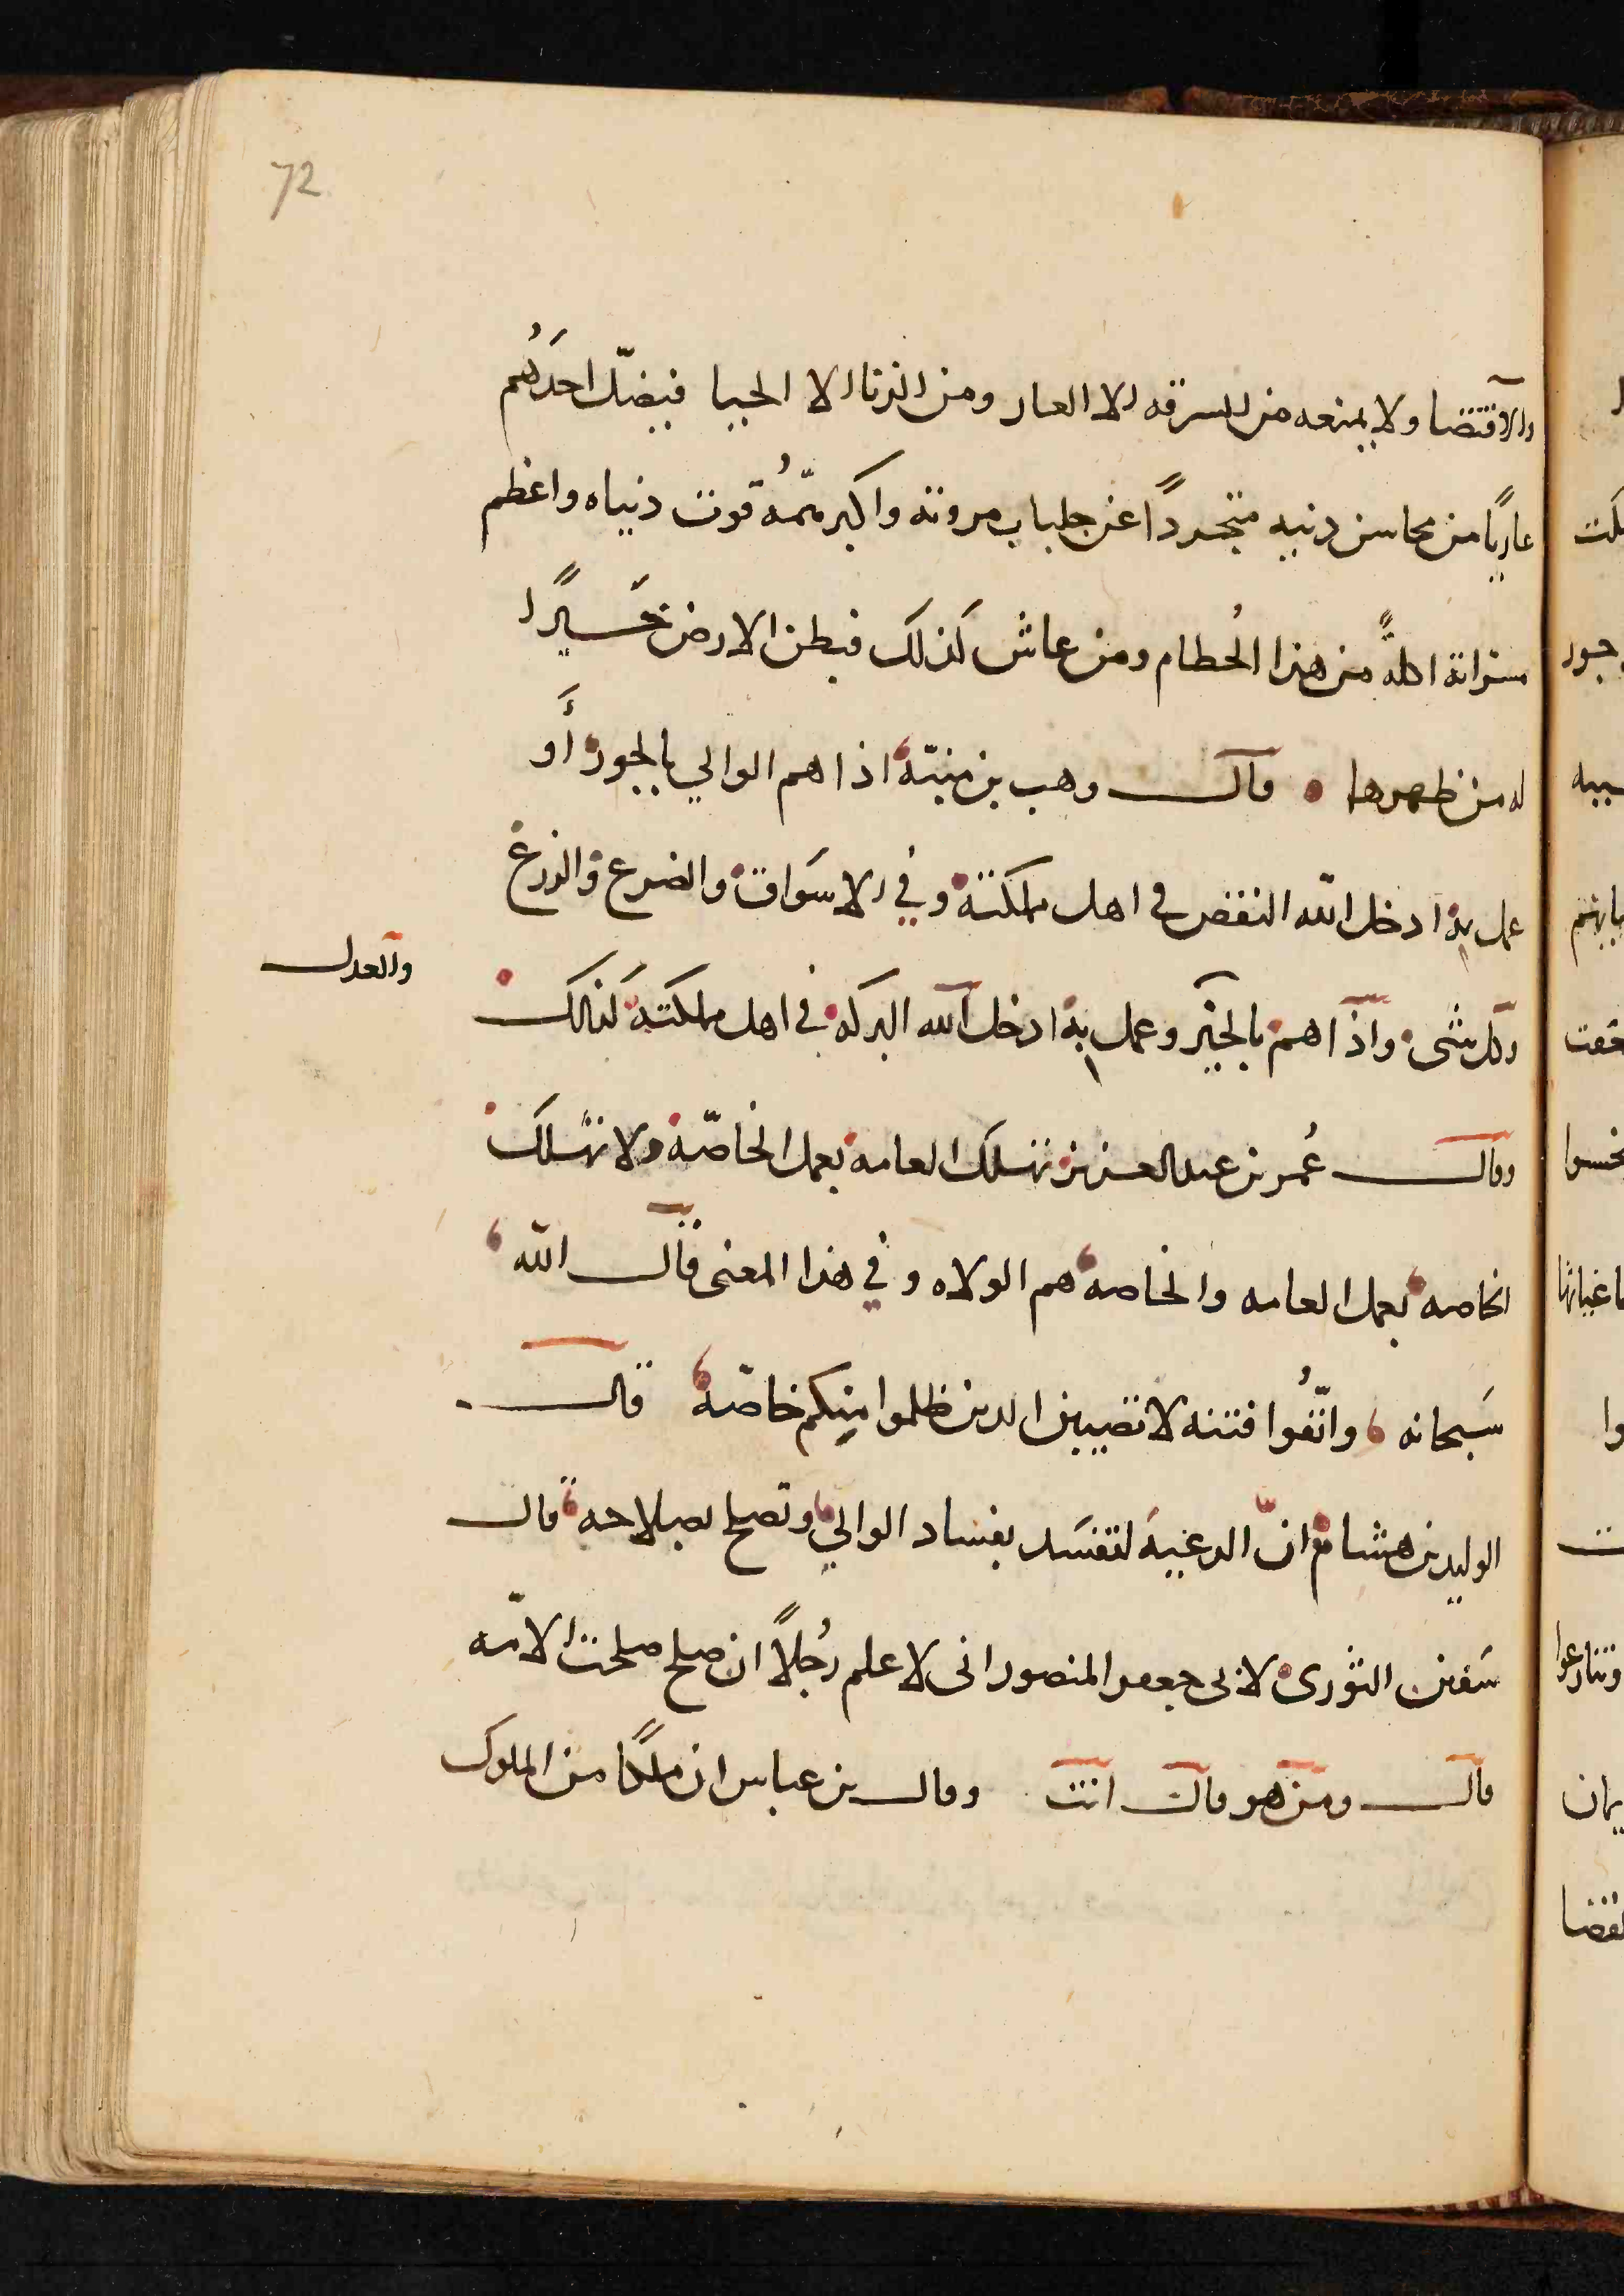 72
والاقتضا ولا يمنعه من السرقه الا العار ومن الزنا الا الحيا فيضلّ احدَهُم
عاريًا من محاسن دنيه متجردًا عن جلباب مروته واكبر همّهُ قوت دنياه واعظم
مسراته اكلةً من هذا الحُطام ومن عاش كذلك فبطن الارض خَيرًا
له من ظهرها قال وهب بن منبّه اذا هم الوالي بالجور أَو
عمل به ادخل الله النقص في اهل مملكته وفي الاسَواق والضرع والزرع
وكل شى واذا هم بالخير وعمل به ادخل الله البركه في اهل مملكته كذلك
والعدل
وقال عُمر بن عبد العزيز تهلك العامه بعمل الخاصّه ولا تهلك
الخاصه بعمل العامه والخاصه هم الولاه وفي هذا المعنى قال الله
سَبحانه واتّقُوا فتنه لا تصيبن الذين ظلموا منكم خاصّه قال
الوليد بن هشام انّ الرعيهَ لتفسَد بفساد الوالي وتصلح بصلاحه قال
سَفين الثورى لابى جعفر المنصور انى لاعلم رجُلًا ان صلح صلحت الامّه
قال ومن هو قال انت وقال بن عباس ان ملكًا من الملوك